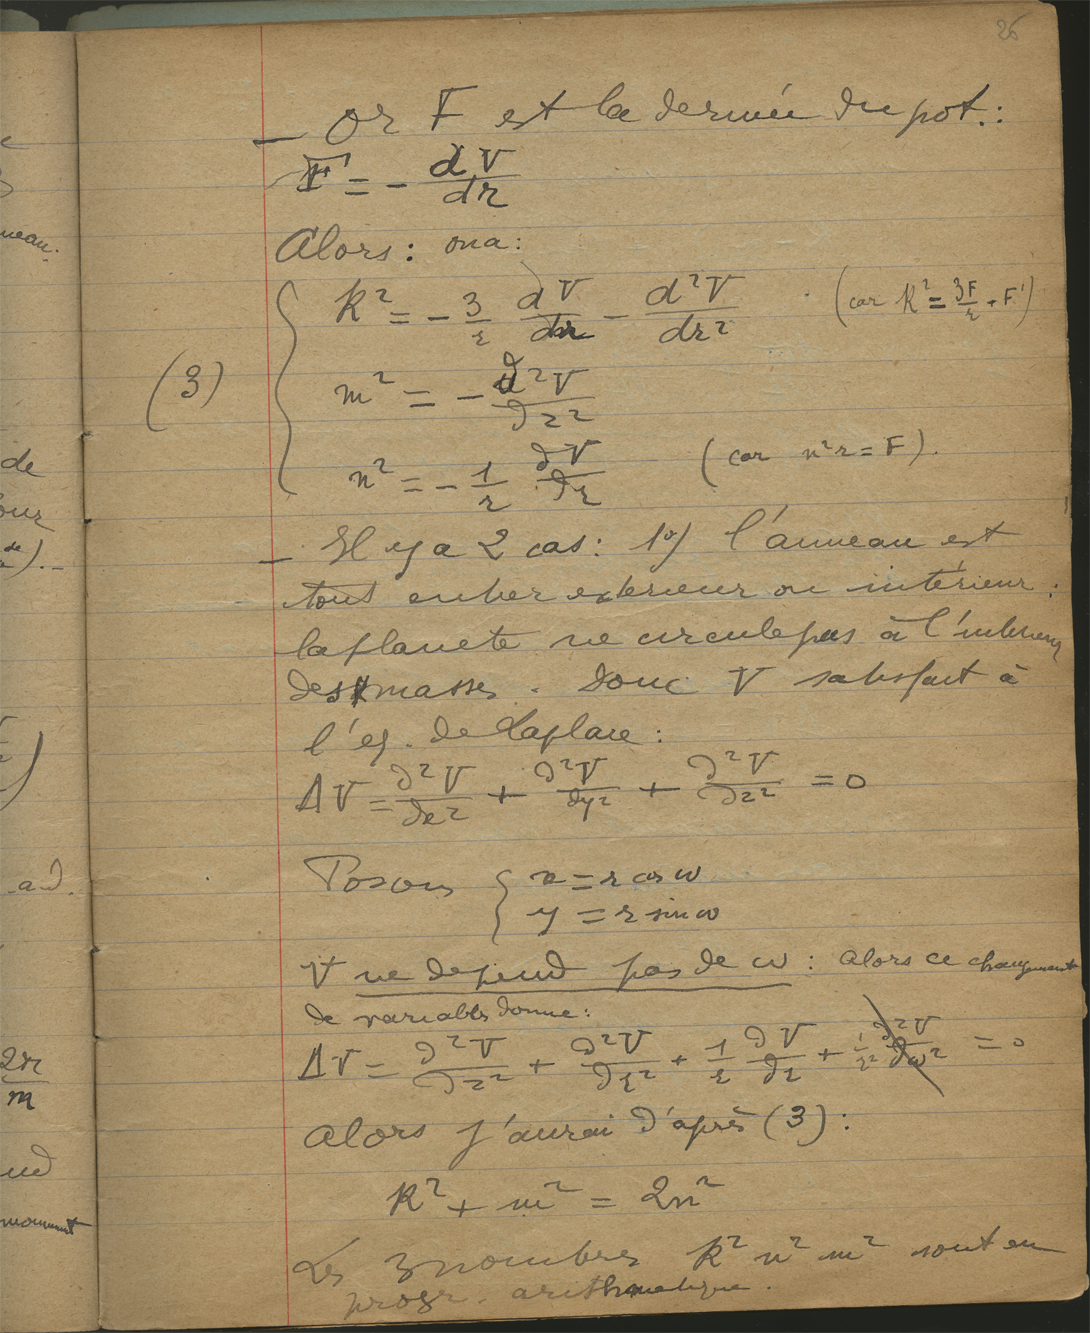 26
— Or F est la dérivée du pot.:
F = - dV/dr
Alors: on a:
K² = - 3/r dV/dr - d²V/dr² (car K² = 3F/r + F')
(3)
m² = - ∂²V/∂z²
n² = - 1/r ∂V/∂r (car n²r = F).
— Il y a 2 cas: 1º) l'anneau est
tout entier extérieur ou intérieur:
la planète ne circule pas à l'intérieur
des masses. Donc V satisfait à
l'éq. de Laplace:
ΔV = ∂²V/∂x² + ∂²V/∂y² + ∂²V/∂z² = 0
Posons { x = r cos ω
y = r sin ω
V ne dépend pas de ω: Alors ce changement
de variables donne:
ΔV = ∂²V/∂z² + ∂²V/∂r² + 1/r ∂V/∂r + 1/r² ∂²V/∂ω² = 0
Alors j'aurai d'après (3):
K² + m² = 2n²
Les 3 nombres K² n² m² sont en
progr. arithmétique.
neau.
de
our
de).-
a d.
2π
m
ud
moment